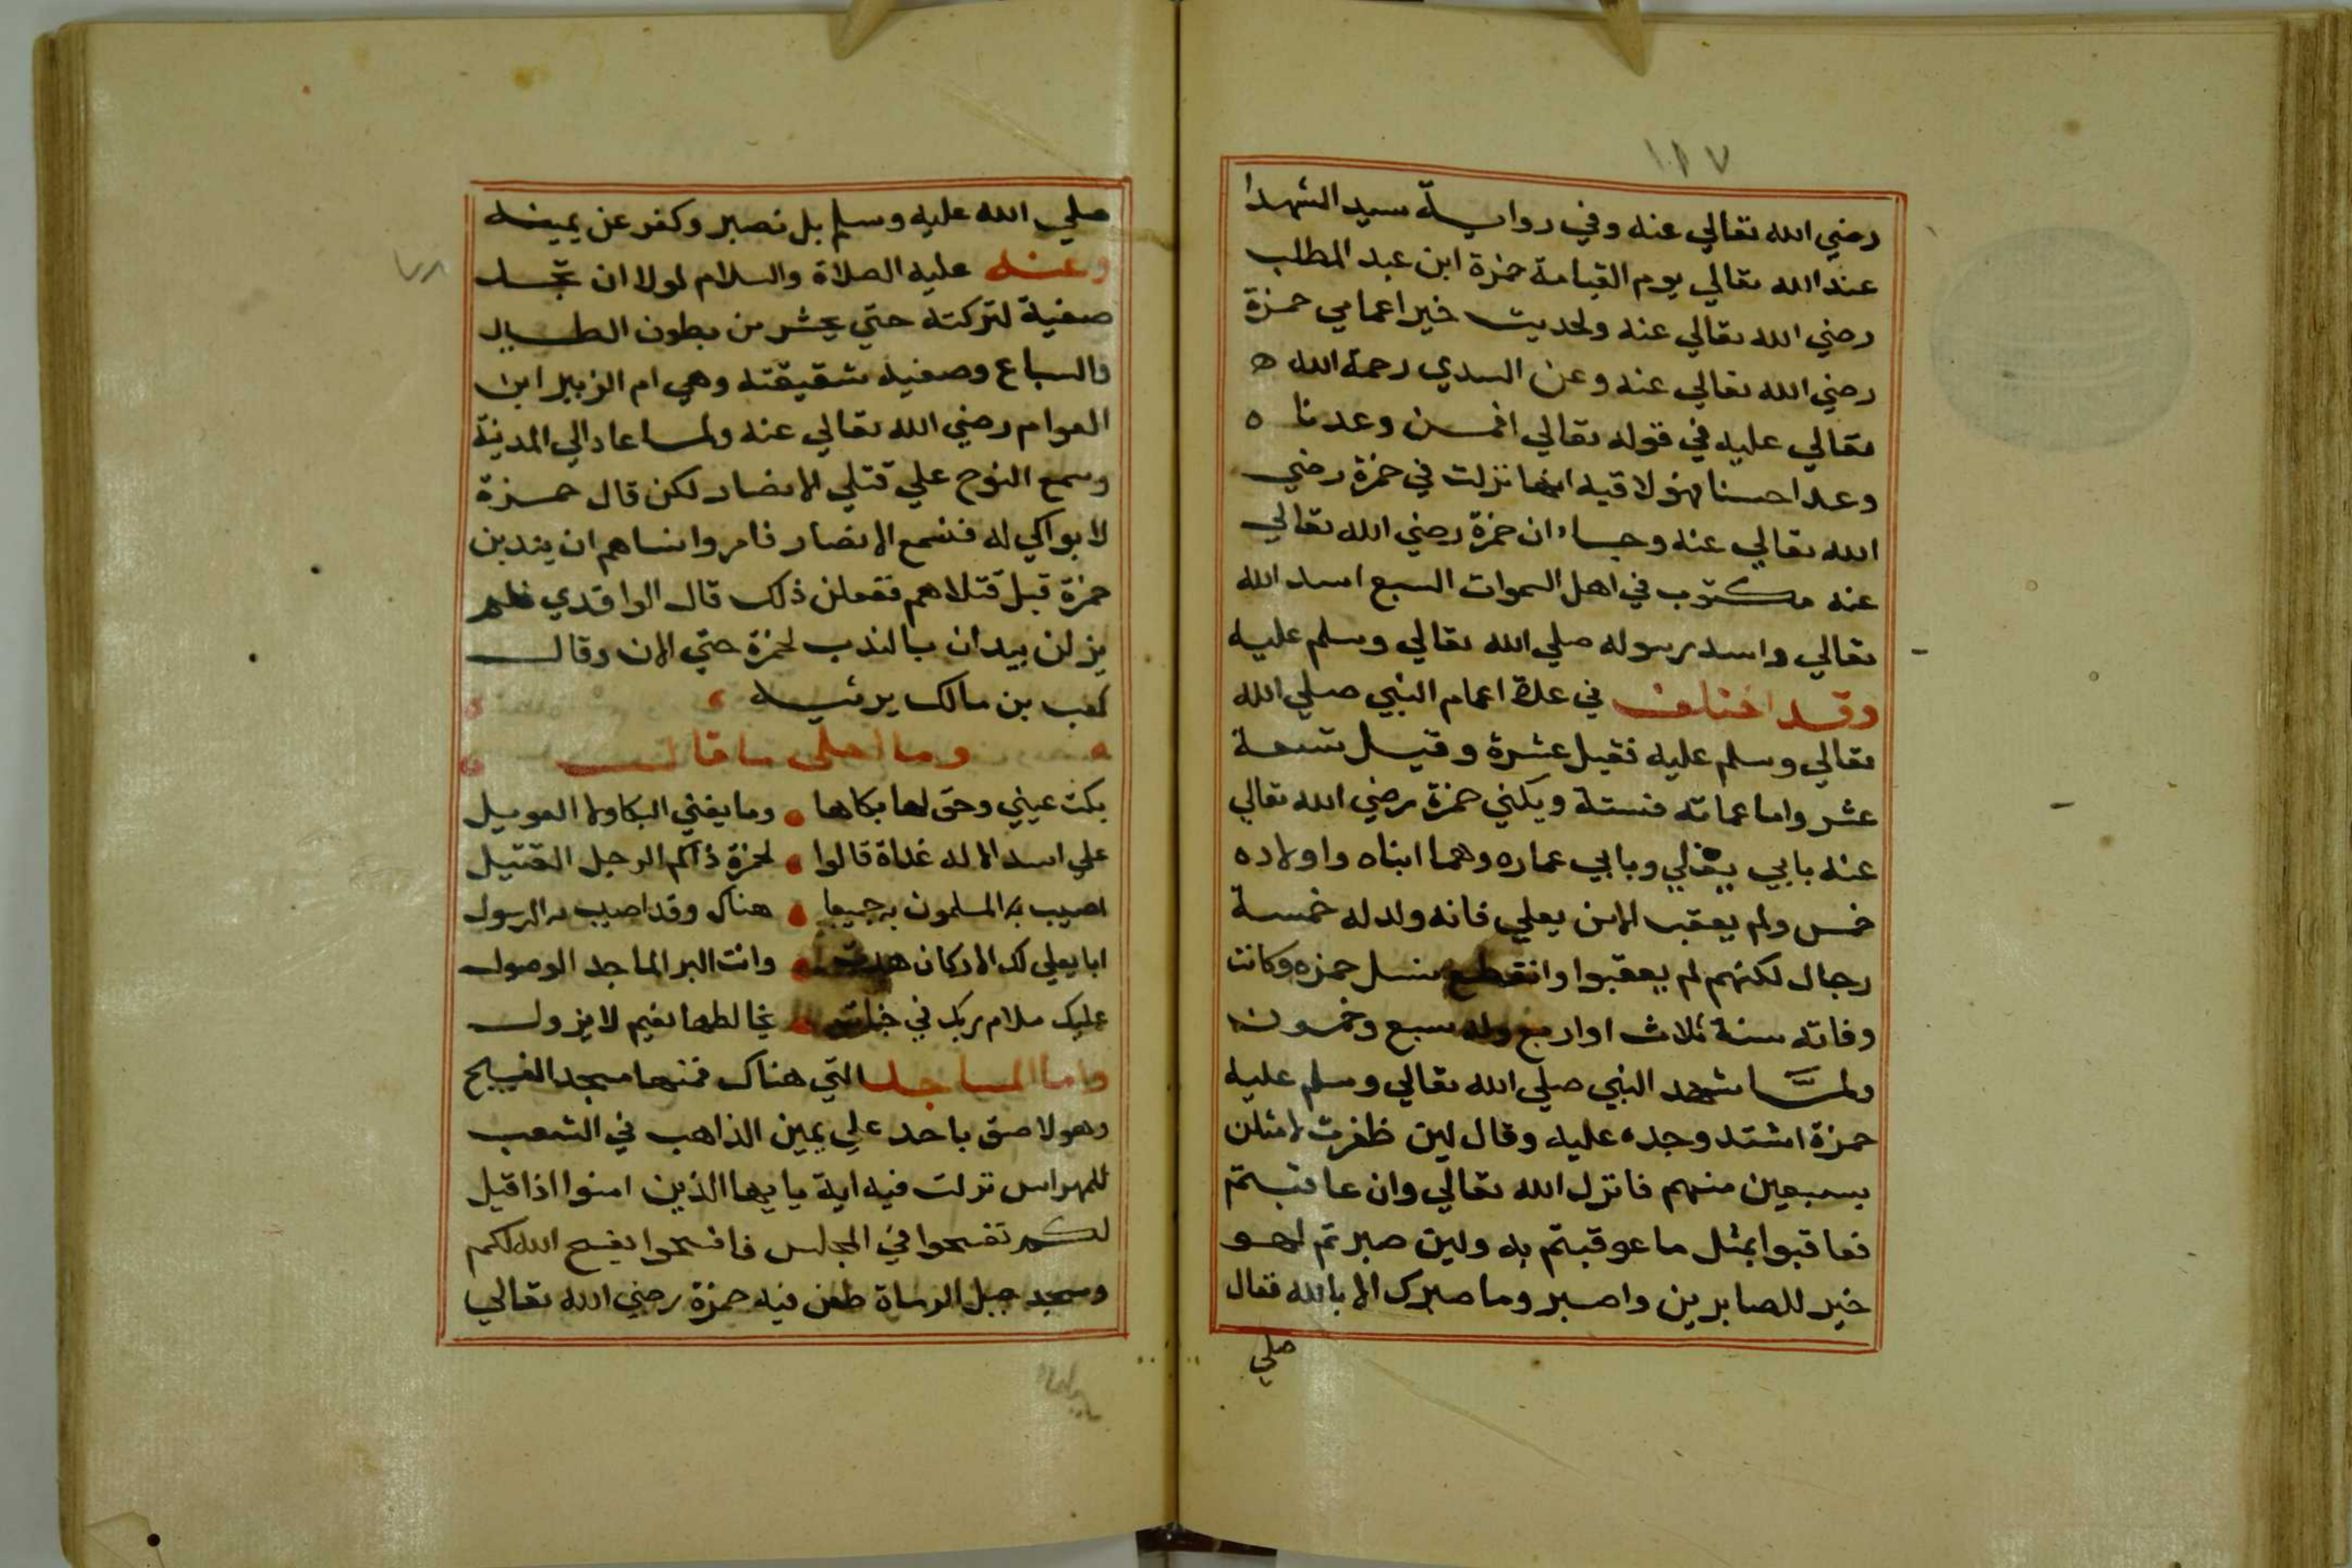 ١١٧
رضي الله تعالي عنه وفي رواية سيد الشهدا
عند الله تعالي يوم القيامة حمزة ابن عبد المطلب
رضي الله تعالي عنه ولحديث خير اعمامي حمزة
رضي الله تعالي عنه وعن السدي رحمة الله ه
تعالي عليه في قوله تعالي افمن وعدنا ه
وعدا حسنا فهو لاقيه انها نزلت في حمزة رضي
الله تعالي عنه وجاء ان حمزة رضي الله تعالي
عنه مكتوب في اهل السموات السبع اسد الله
تعالي واسد رسوله صلي الله تعالي وسلم عليه
وقد اختلف في عدة اعمام النبي صلي الله
تعالي وسلم عليه فقيل عشرة وقيل تسعة
عشر واما عماته فستة ويكني حمزة رضي الله تعالي
عنه بابي يعلي وبابي عماره وهما ابناه واولاده
خمس ولم يعقب الا من يعلي فانه ولد له خمسة
رجال لكنهم لم يعقبوا وانقطع نسل حمزه وكانت
وفاته سنة ثلاث او اربع وله سبع وخمسون
ولما شهد النبي صلي الله تعالي وسلم عليه
حمزة اشتد وجده عليه وقال لين ظفرت لامثلن
بسبعين منهم فانزل الله تعالي وان عاقبتم
فعاقبوا بمثل ما عوقبتم به ولين صبرتم لهو
خير للصابرين واصبر وما صبرك الا بالله فقال
صلي
صلي الله عليه وسلم بل نصبر وكفر عن يمينه
وعنه عليه الصلاة والسلام لولا ان تجد
صفية لتركته حتي يحشر من بطون الطير
والسباع وصفيه شقيقته وهي ام الزبير ابن
العوام رضي الله تعالي عنه ولما عاد الي المدينة
وسمع النوح علي قتلي الانصار لكن قال حمزة
لا بواكي له فسمع الانصار فامروا نساهم ان يندبن
حمزة قبل قتلاهم ففعلن ذلك قال الواقدي فلم
يزلن يبدان بالندب لحمزة حتي الان وقال
كعب بن مالك يرثيه
وما احلي ما قال
بكت عيني وحق لها بكاها وما يغني البكا ولا العويل
علي اسد الاله غداة قالوا لحمزة ذاكم الرجل القتيل
اصيب به المسلمون به جميعا هناك وقد اصيب به الرسول
ابا يعلي لك الاركان هدت وانت البر الماجد الوصول
عليك سلام ربك في جنان يخالطها نعيم لا يزول
واما المساجد التي هناك فمنها مسجد الفسيح
وهو لاصق باحد علي يمين الذاهب في الشعب
للمهراس نزلت فيه اية يا يها الذين امنوا اذا قيل
لكم تفسحوا في المجالس فافسحوا يفسح الله لكم
ومسجد جبل الرماة طعن فيه حمزة رضي الله تعالي